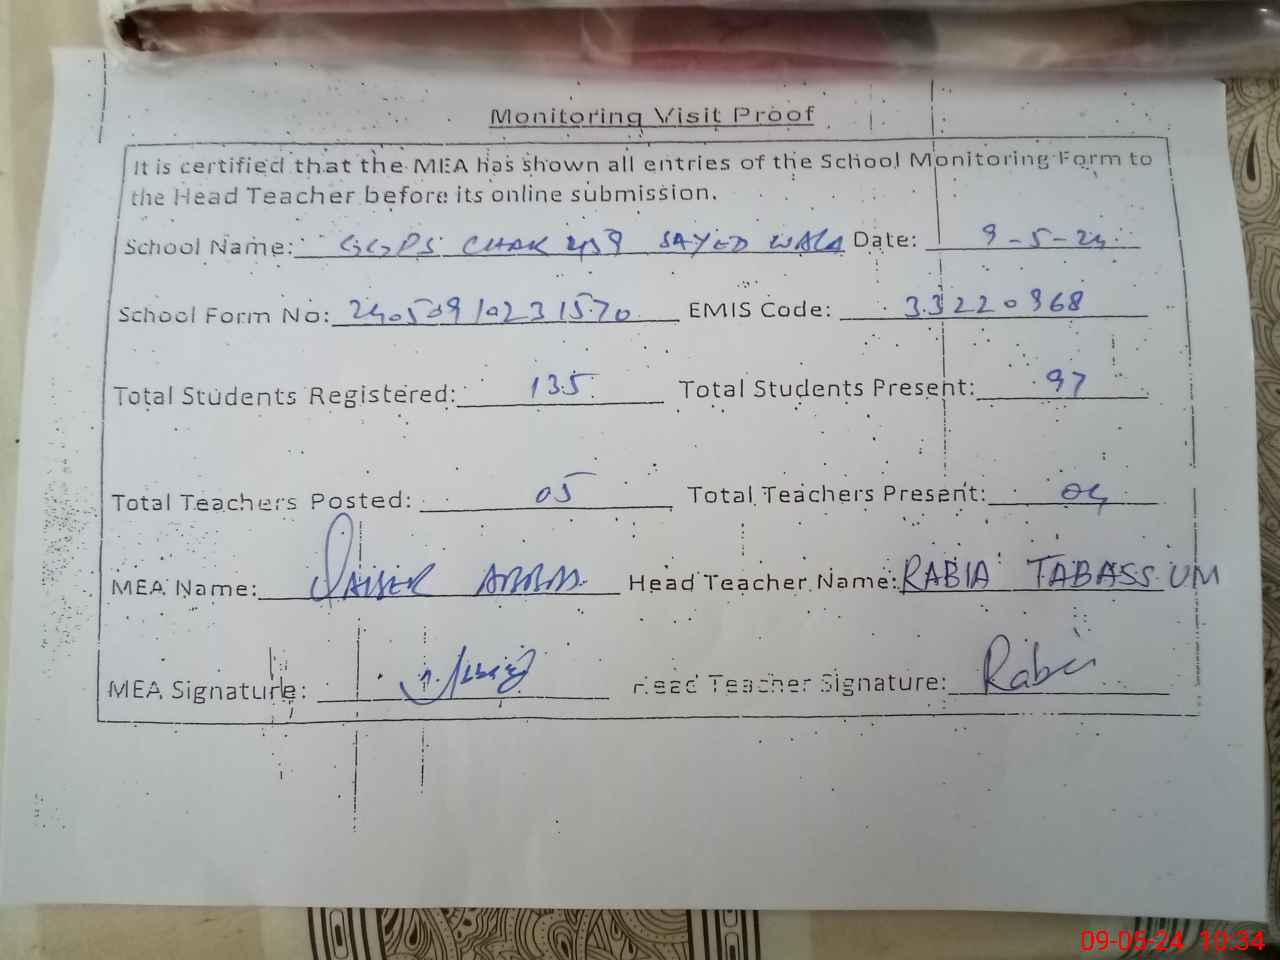 Monitoring Visit Proof
It is certified that the MEA has shown all entries of the School Monitoring Form to
the Head Teacher before its online submission.
School Name: GGPS CHAK 459 SAYED WALA Date: 9-5-24
School Form No: 24050910231570 EMIS Code: 33220968
Total Students Registered: 135 Total Students Present: 97
Total Teachers Posted: 05 Total Teachers Present: 04
MEA Name: QAISER ABBAS Head Teacher Name: RABIA TABASSUM
MEA Signature: Head Teacher Signature: Rabi
09-05-24 10:34